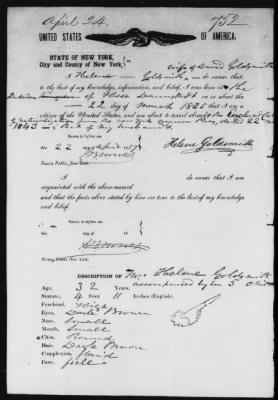 April 24.
752
UNITED STATES OF AMERICA.
STATE OF NEW YORK,
City and County of New York,
wife of David Goldsmith
I Helene Goldsmith do swear that,
to the best of my knowledge, information, and belief, I was born in the
of Hesse Darmstadt on or about the
22 day of March 1825 that I am a
citizen of the United States, and am about to travel abroad
Common Pleas, dated 22
1843 that of my husband
Sworn to before me
this 22 day of April 18
Helene Goldsmith
Notary Public, New York.
I do swear that I am
acquainted with the above-named
and that the facts above stated by him are true to the best of my knowledge
and belief.
Sworn to before me
this day of 18
Notary Public, New York.
DESCRIPTION OF Mrs Helene Goldsmith
accompanied by her 5
Age, 32 Years,
Stature, 4 Feet 11 Inches (English).
Forehead, High
Eyes, Dark Brown
Nose, Small
Mouth, Small
Chin, Round
Hair, Dark Brown
Complexion, florid
Face, full